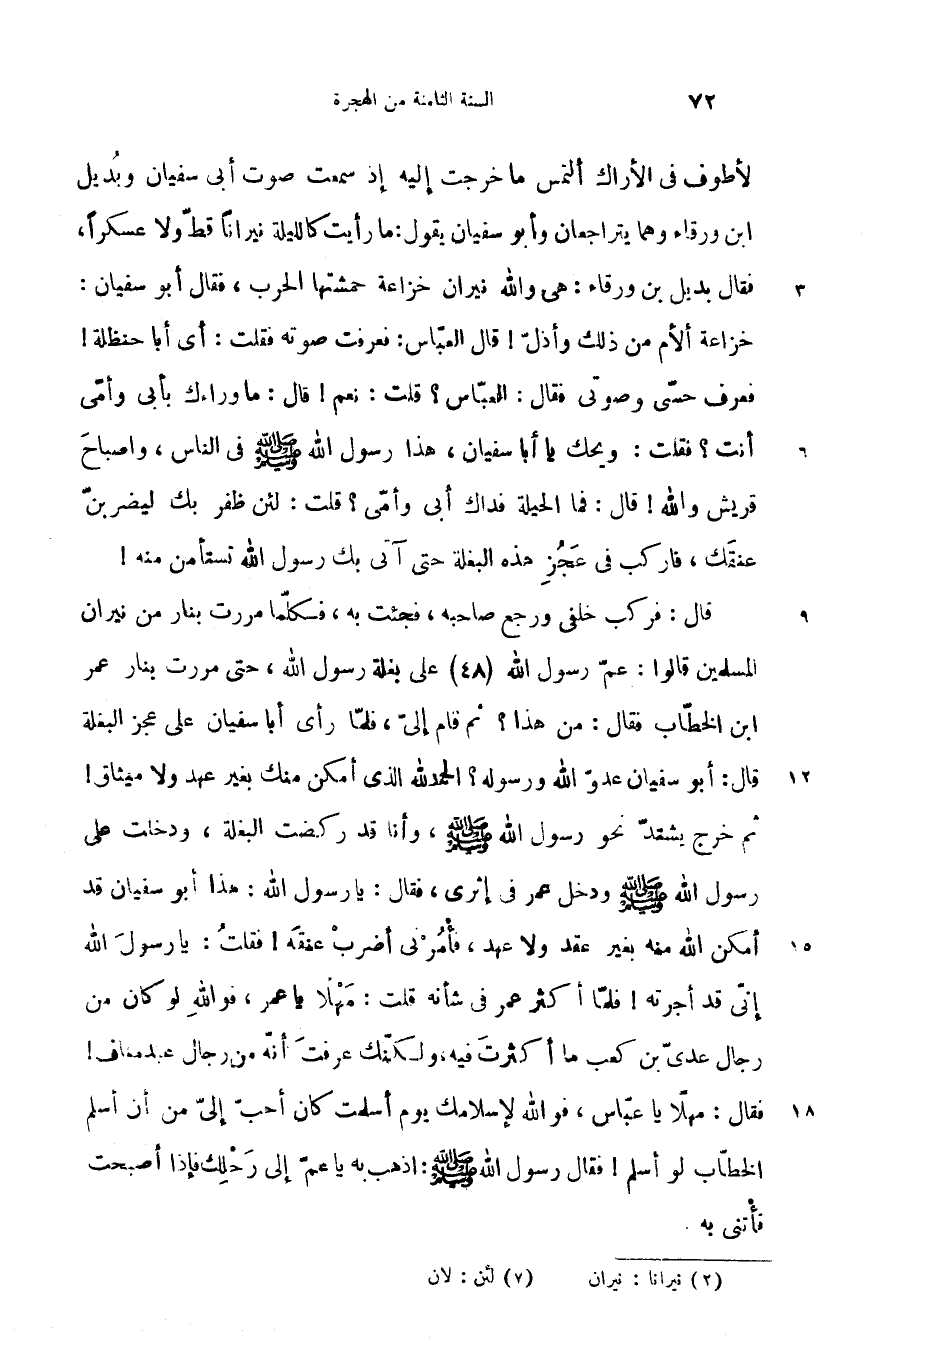 ٧٢ السنة الثامنة من الهجرة
لأطوف فى الأراك ألتمس ما خرجت إليه إذ سمعت صوت أبى سفيان وبُديل
ابن ورقاء وهما يتراجعان وأبو سفيان يقول: ما رأيت كالليلة نيراناً قطّ ولا عسكراً،
٣ فقال بديل بن ورقاء : هى والله نيران خزاعة حمشتها الحرب ، فقال أبو سفيان :
خزاعة ألأم من ذلك وأذلّ ! قال العبّاس: فعرفت صوته فقلت : أى أبا حنظلة !
فعرف حسّى وصوتى فقال : العبّاس ؟ قلت : نعم ! قال : ما وراءك بأبى وأمّى
٦ أنت ؟ فقلت : ويحك يا أبا سفيان ، هذا رسول الله ﷺ فى الناس ، واصباحَ
قريش والله ! قال : فما الحيلة فداك أبى وأمّى ؟ قلت : لئن ظفر بك ليضربنّ
عنقَك ، فاركب فى عَجُزِ هذه البغلة حتى آتى بك رسول الله تستأمن منه !
٩ قال : فركب خلفى ورجع صاحبه ، فجئت به ، فكلّما مررت بنار من نيران
المسلمين قالوا : عمّ رسول الله (٤٨) على بغلة رسول الله ، حتى مررت بنار عمر
ابن الخطّاب فقال : من هذا ؟ ثم قام إلىّ ، فلمّا رأى أبا سفيان على عجز البغلة
١٢ قال: أبو سفيان عدوّ الله ورسوله ؟ الحمد لله الذى أمكن منك بغير عهد ولا ميثاق !
ثم خرج يشتدّ نحو رسول الله ﷺ ، وأنا قد ركضت البغلة ، ودخلت على
رسول الله ﷺ ودخل عمر فى إثرى ، فقال : يا رسول الله : هذا أبو سفيان قد
١٥ أمكن الله منه بغير عقد ولا عهد ، فأْمُرْنى أضربْ عنقَه ! فقلتُ : يا رسولَ الله
إنّى قد أجرته ! فلمّا أكثر عمر فى شأنه قلت : مَهْلًا يا عمر ، فوالله لو كان من
رجال عدىّ بن كعب ما أكثرتَ فيه، ولكنّك عرفتَ أنّه من رجال عبد مناف !
١٨ فقال : مهلًا يا عبّاس ، فوالله لإسلامك يوم أسلمت كان أحبّ إلىّ من أن أسلم
الخطّاب لو أسلم ! فقال رسول الله ﷺ : اذهب به يا عمّ إلى رَحْلِك فإذا أصبحت
فأْتنى به .
(٢) نيرانا : نيران (٧) لئن : لان